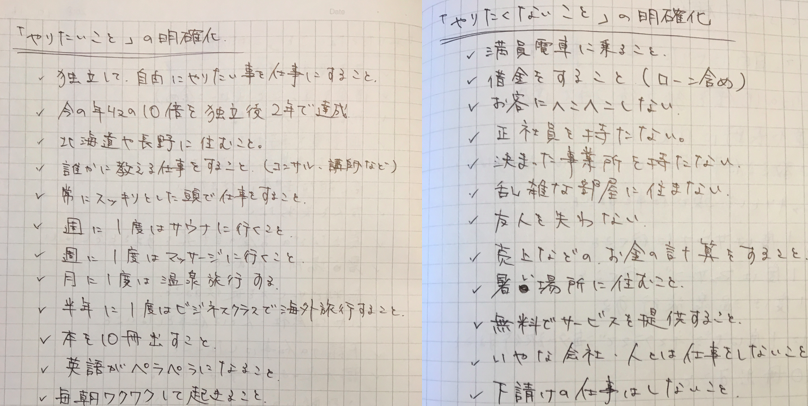 「やりたいこと」の明確化
✓ 独立して、自由にやりたい事を仕事にすること。
✓ 今の年収の10倍を独立後2年で達成
✓ 北海道や長野に住むこと。
✓ 誰かに教える仕事をすること。(コンサル・講師など)
✓ 常にスッキリとした頭で仕事をすること。
✓ 週に1度はサウナに行くこと
✓ 週に1度はマッサージに行くこと
✓ 月に1度は温泉旅行する。
✓ 半年に1度はビジネスクラスで海外旅行すること。
✓ 本を10冊出すこと。
✓ 英語がペラペラになること
✓ 毎朝ワクワクして起きること。
「やりたくないこと」の明確化
✓ 満員電車に乗ること。
✓ 借金をすること(ローン含め)
✓ お客にヘコヘコしない
✓ 正社員を持たない。
✓ 決まった事業所を持たない。
✓ 乱雑な部屋に住まない。
✓ 友人を失わない
✓ 売上などの、お金の計算をすること。
✓ 暑い場所に住むこと。
✓ 無料でサービスを提供すること。
✓ いやな会社・人とは仕事をしないこと
✓ 下請けの仕事はしないこと。